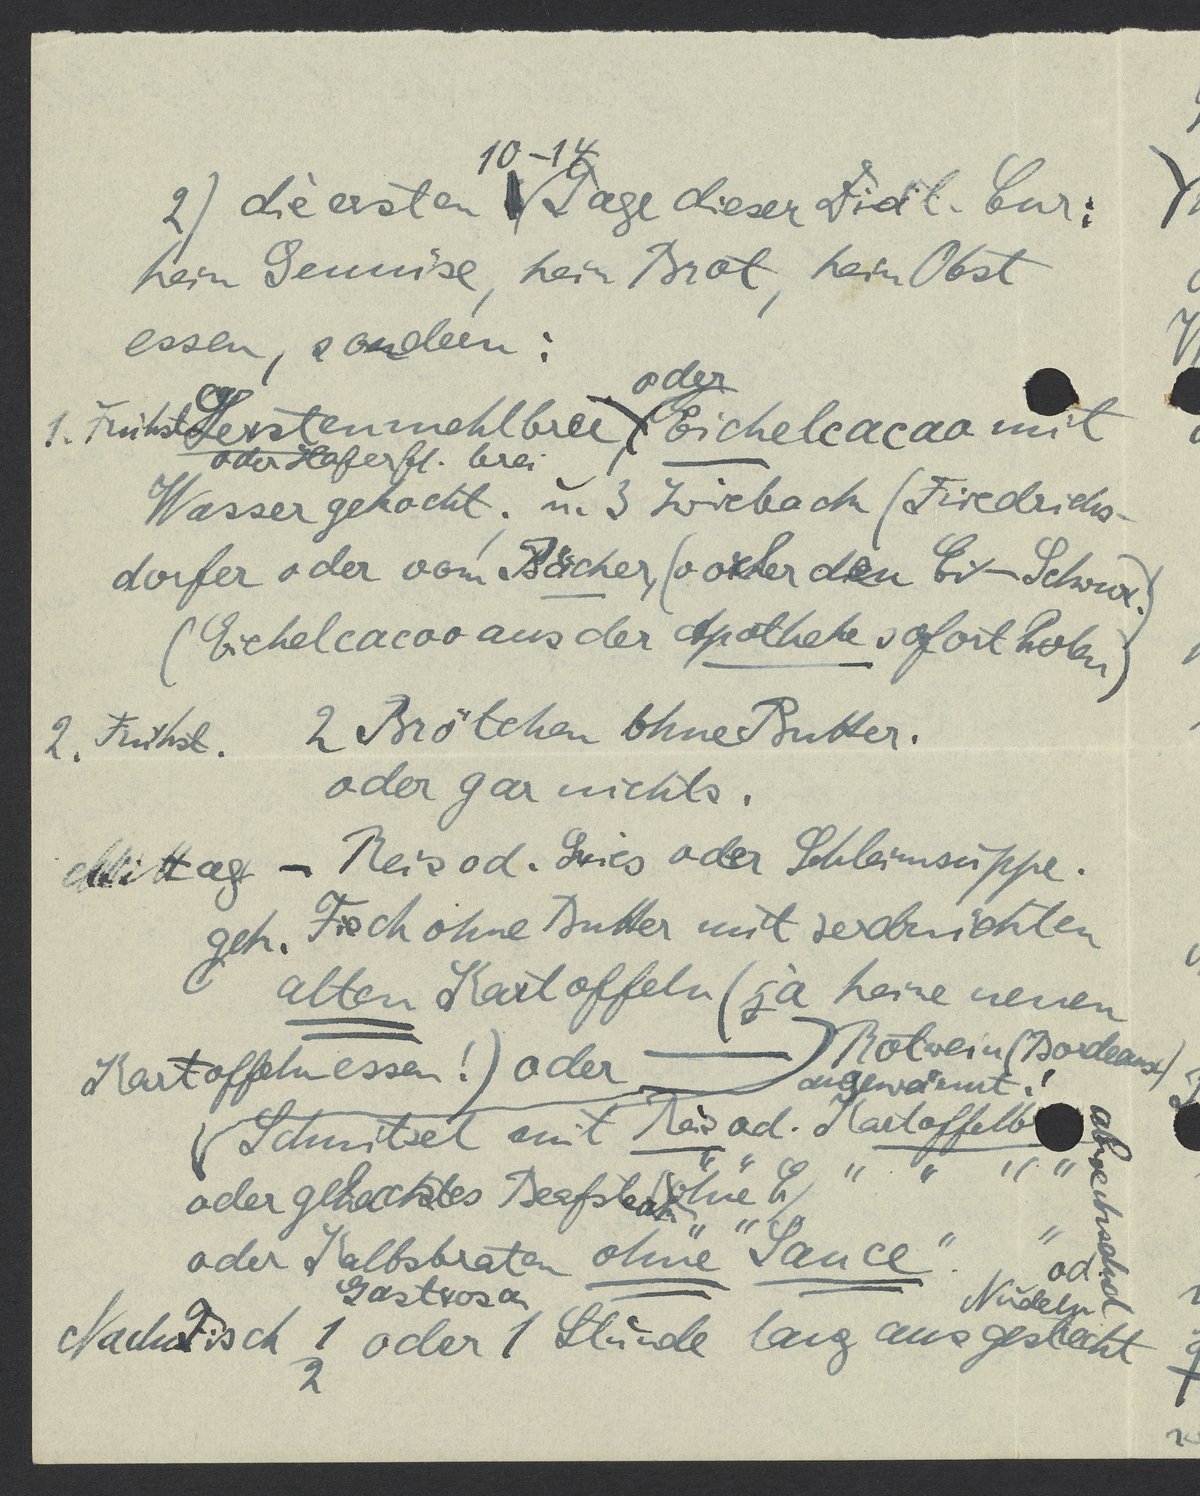 10-14
2) die ersten Tage dieser Diät. Cur:
kein Gemüse, kein Brot, kein Obst
essen, sondern:
oder
1. Frühst. Gerstenmehlbrei, Eichelcacao mit
oder Haferfl. brei
Wasser gekocht, u. 3 Zwieback (Friedrichs-
dorfer oder vom Bäcker, (vorher den Ei-Schnee.)
(Eichelcacao aus der Apotheke sofort holen)
2. Frühst. 2 Brötchen ohne Butter.
oder gar nichts.
Mittag - Reis od. Gries oder Schleimsuppe.
gek. Fisch ohne Butter mit zerdrückten
alten Kartoffeln (ja keine neuen
Kartoffeln essen!) oder Rotwein (Bordeaux)
angewärmt!
Schnitzel mit Reis od. Kartoffelb
oder gehacktes Beafsteak (ohne Ei) " " " "
oder Kalbsbraten ohne "Sauce". " od.
abwechselnd
Nudeln
Gastrosan
Nach Tisch 1/2 oder 1 Stunde lang ausgestreckt